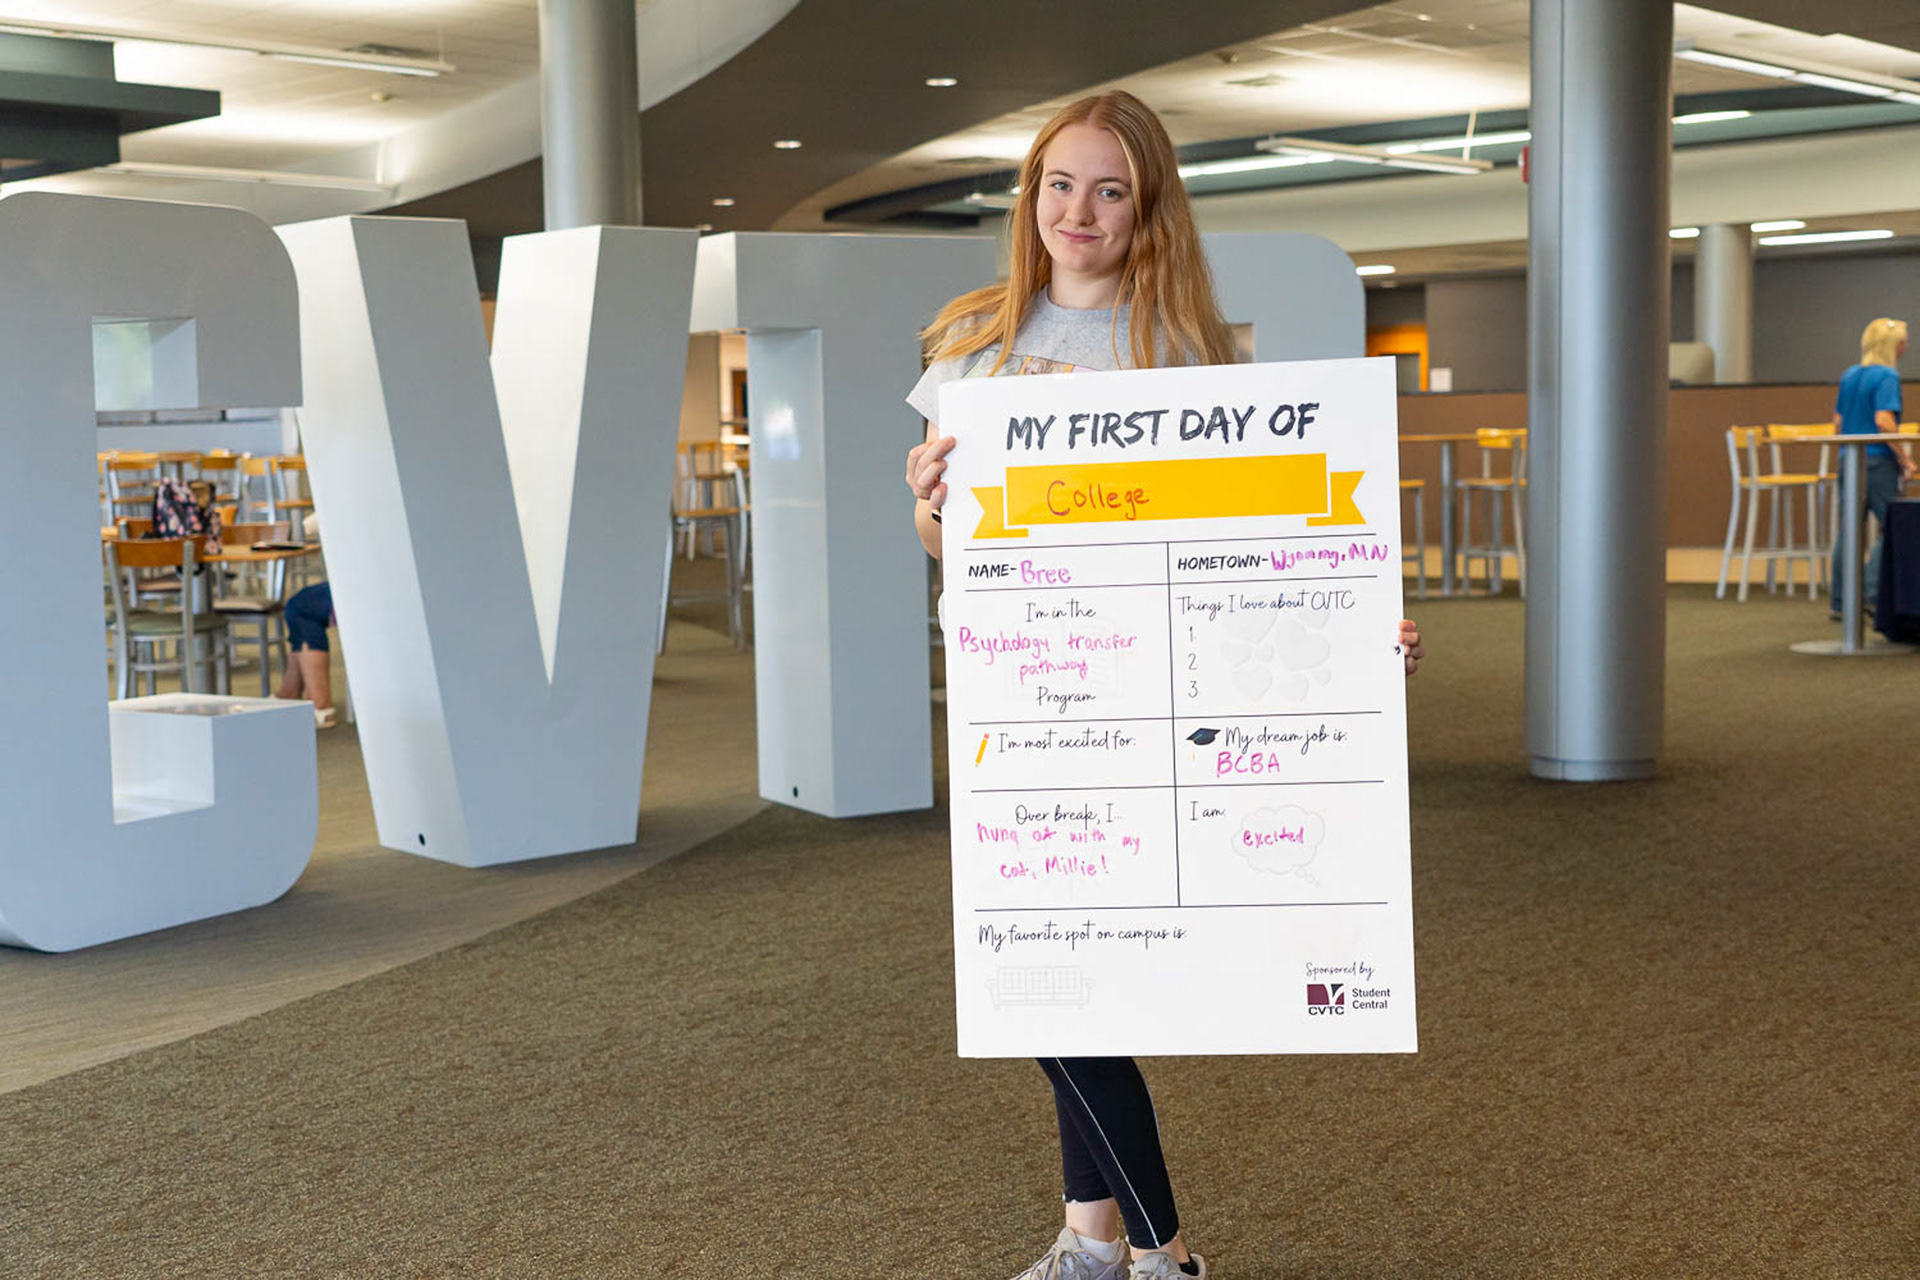 CVTC
MY FIRST DAY OF
College
NAME- Bree
HOMETOWN- Wyoming, MN
I'm in the
Psychology transfer
pathway
Program
Things I love about CVTC
1.
2
3.
I'm most excited for:
My dream job is:
BCBA
Over break, I...
hung ot with my
cat, Millie!
I am:
excited
My favorite spot on campus is:
Sponsored by
CVTC
Student
Central